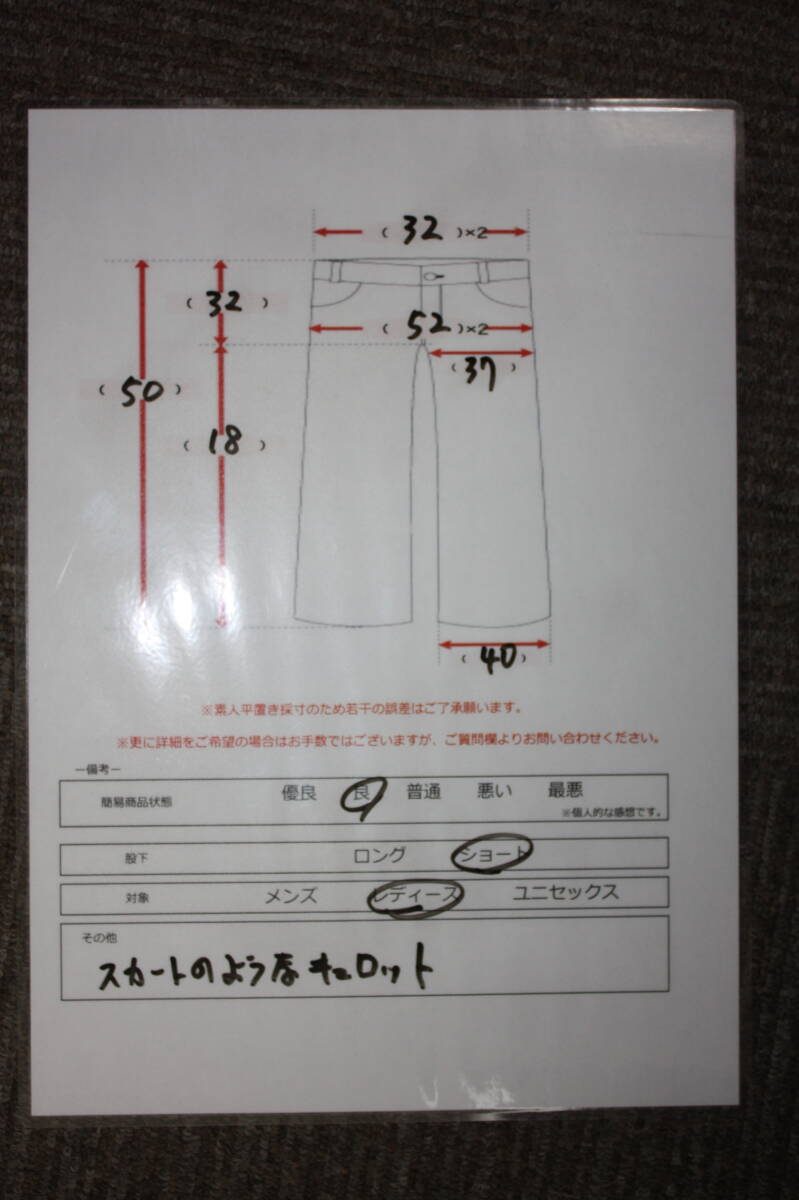 ( 32 )×2
( 32 )
( 52 )×2
( 37 )
( 50 )
( 18 )
( 40 )
※素人平置き採寸のため若干の誤差はご了承願います。
※更に詳細をご希望の場合はお手数ではございますが、ご質問欄よりお問い合わせください。
ー備考ー
簡易商品状態 優良 良 普通 悪い 最悪
※個人的な感想です。
股下 ロング ショート
対象 メンズ レディース ユニセックス
その他
スカートのようなキュロット